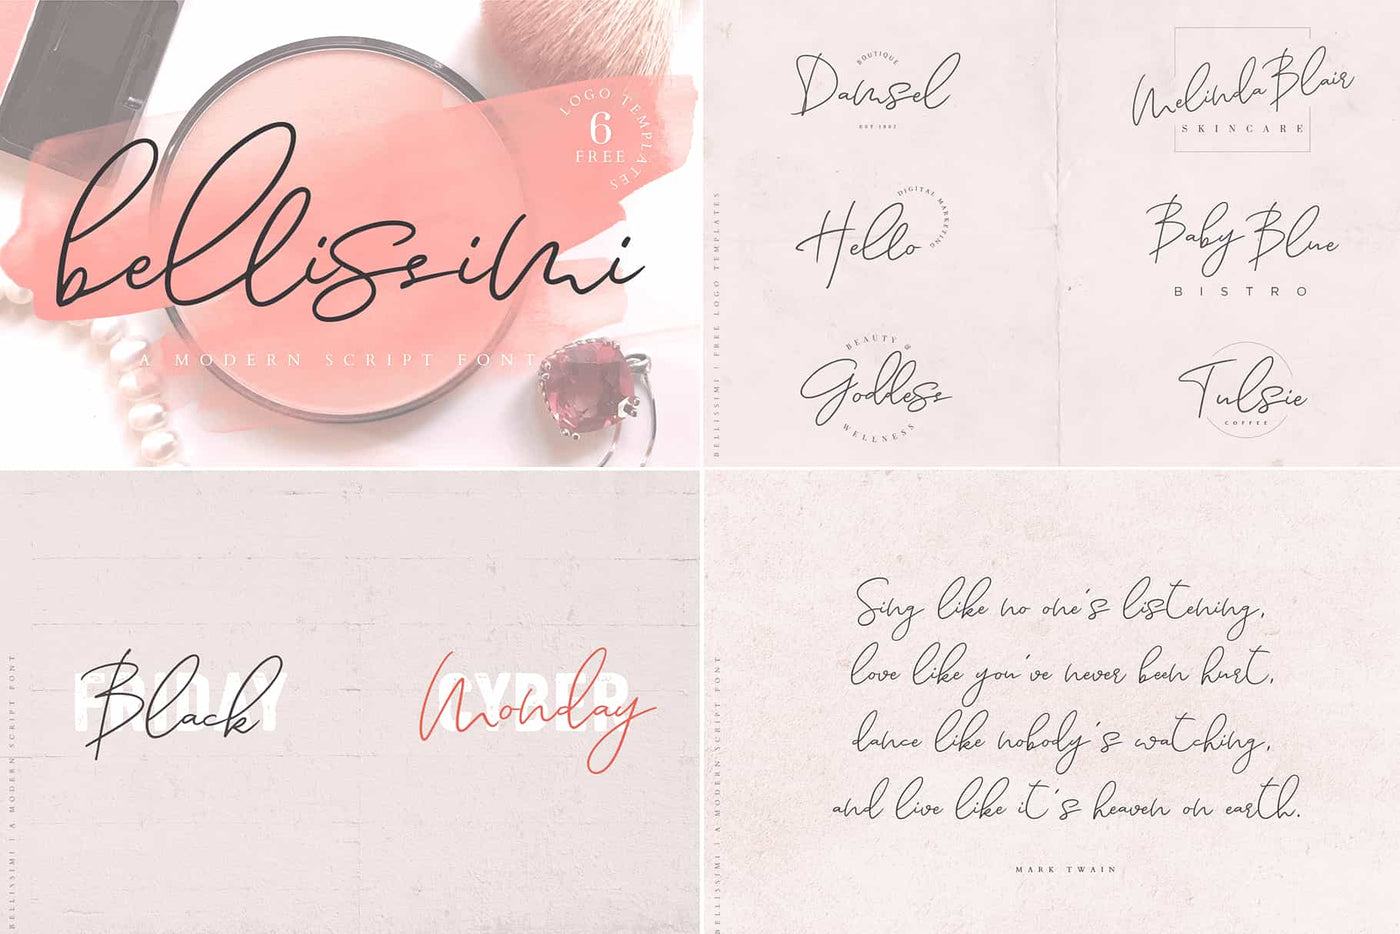 LOGO TEMPLATES
6
FREE
bellissimi
A MODERN SCRIPT FONT
BOUTIQUE
Damsel
EST 1982
Melinda Blair
SKINCARE
DIGITAL MARKETING
Hello
Baby Blue
BISTRO
BEAUTY &
Goddess
WELLNESS
Tulsie
COFFEE
BELLISSIMI | FREE LOGO TEMPLATES
FRIDAY
Black
CYBER
Monday
BELLISSIMI | A MODERN SCRIPT FONT
Sing like no one's listening,
love like you've never been hurt,
dance like nobody's watching,
and live like it's heaven on earth.
MARK TWAIN
BELLISSIMI | A MODERN SCRIPT FONT